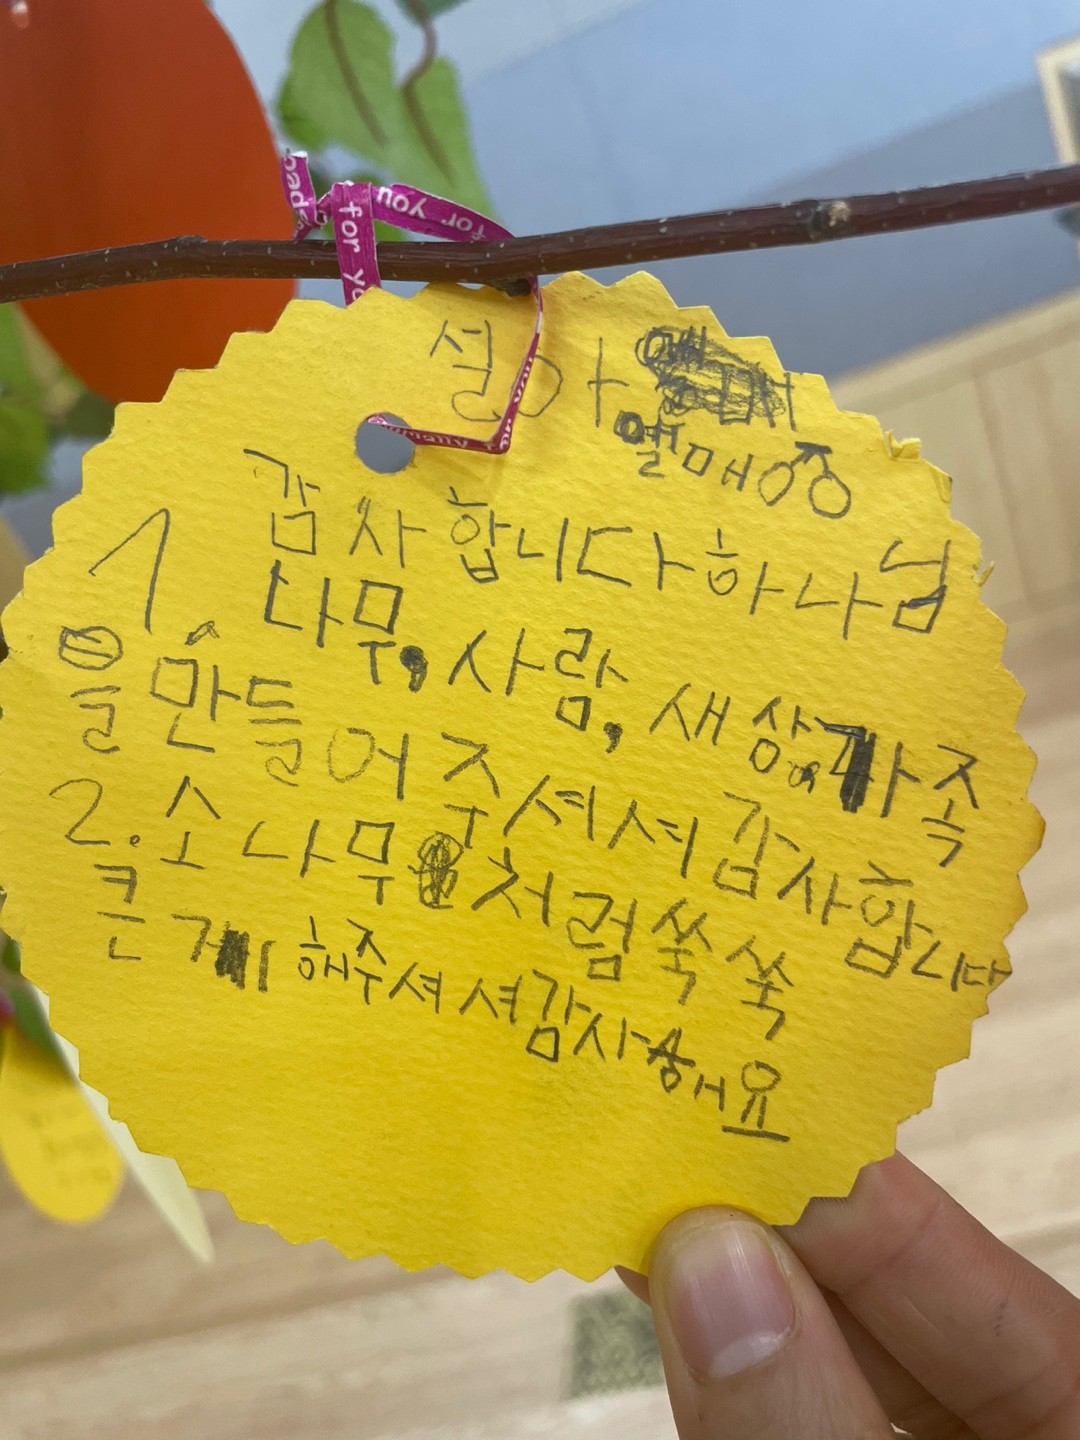 for you
for you
설아
열매
감사합니다하나님
1 나무, 사람, 새상, 가족
을 만들어주셔셔감사합니다
2. 소나무처럼쑥쑥
큰게해주셔셔감사해요